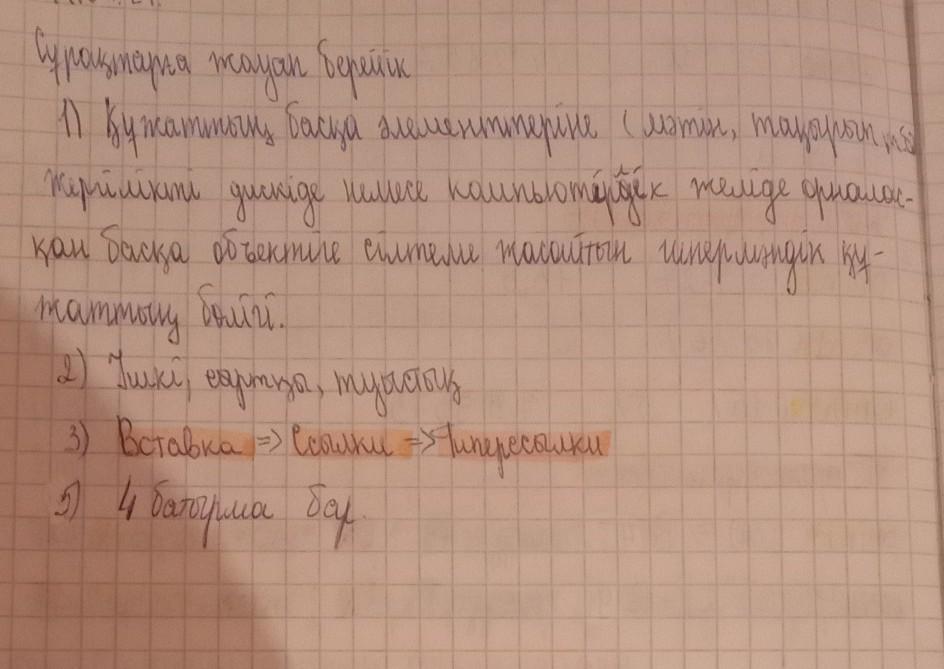 Сұрақтарға жауап берейік
1) Құжаттың басқа элементтеріне (мәтін, тақырып, т.б)
жергілікті дискіде немесе компьютерлік желіде орналас-
қан басқа объектіге сілтеме жасайтын гипермәндік құ-
жаттың бөлігі.
2) Ішкі, сыртқы, туыстық
3) Вставка => Ссылки => Гиперссылки
5) 4 батырма бар.